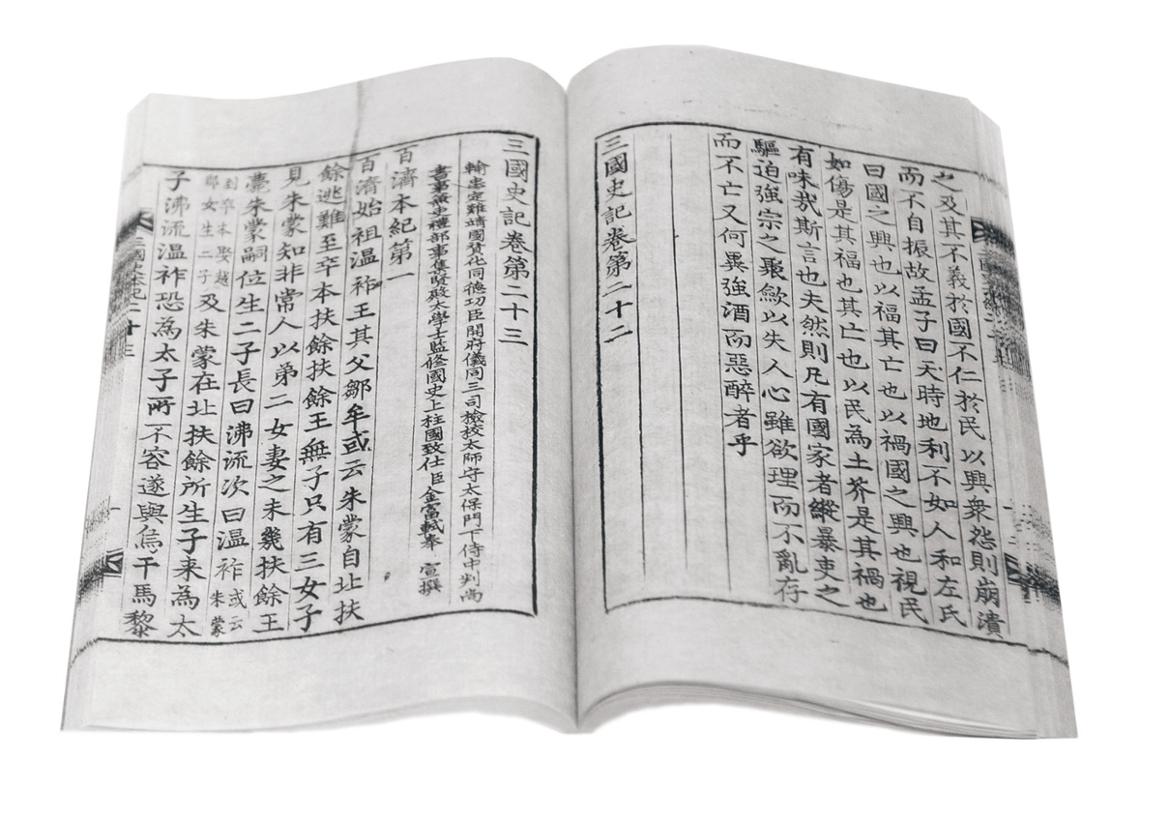 之及其不義於國不仁於民以興衆怨則崩潰
而不自振故孟子曰天時地利不如人和左氏
曰國之興也以福其亡也以禍國之興也視民
如傷是其福也其亡也以民為土芥是其禍也
有味哉斯言也夫然則凡有國家者縱暴吏之
驅迫強宗之聚歛以失人心雖欲理而不亂存
而不亡又何異強酒而惡醉者乎
三國史記卷第二十二
三國史記卷第二十三
輸忠定難靖國贊化同德功臣開府儀同三司檢校太師守太保門下侍中判尚
書事兼吏禮部事集賢殿太學士監修國史上柱國致仕臣金富軾奉 宣撰
百濟本紀第一
百濟始祖温祚王其父鄒牟或云朱蒙自北扶
餘逃難至卒本扶餘扶餘王無子只有三女子
見朱蒙知非常人以弟二女妻之未幾扶餘王
薨朱蒙嗣位生二子長曰沸流次曰温祚或云朱蒙
到卒本娶越郡女生二子及朱蒙在北扶餘所生子来為太
子沸流温祚恐為太子所不容遂與烏干馬黎